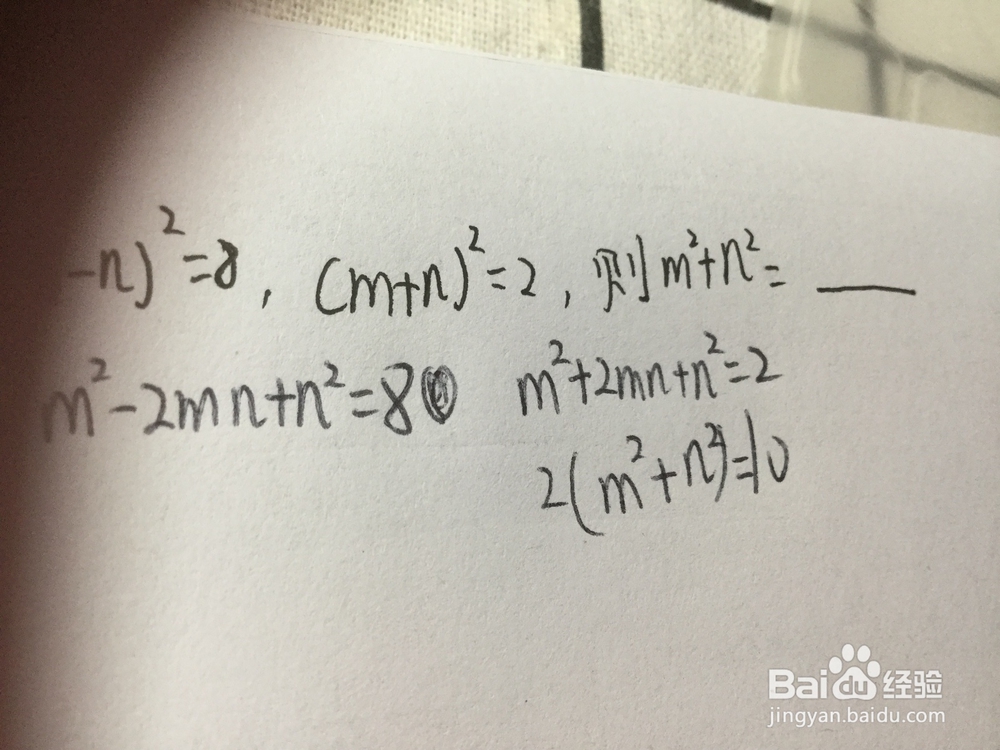 -n)²=8, (m+n)²=2, 则m²+n²=___
m²-2mn+n²=8 m²+2mn+n²=2
2(m²+n²)=10
Baidu经验
jingyan.baidu.com